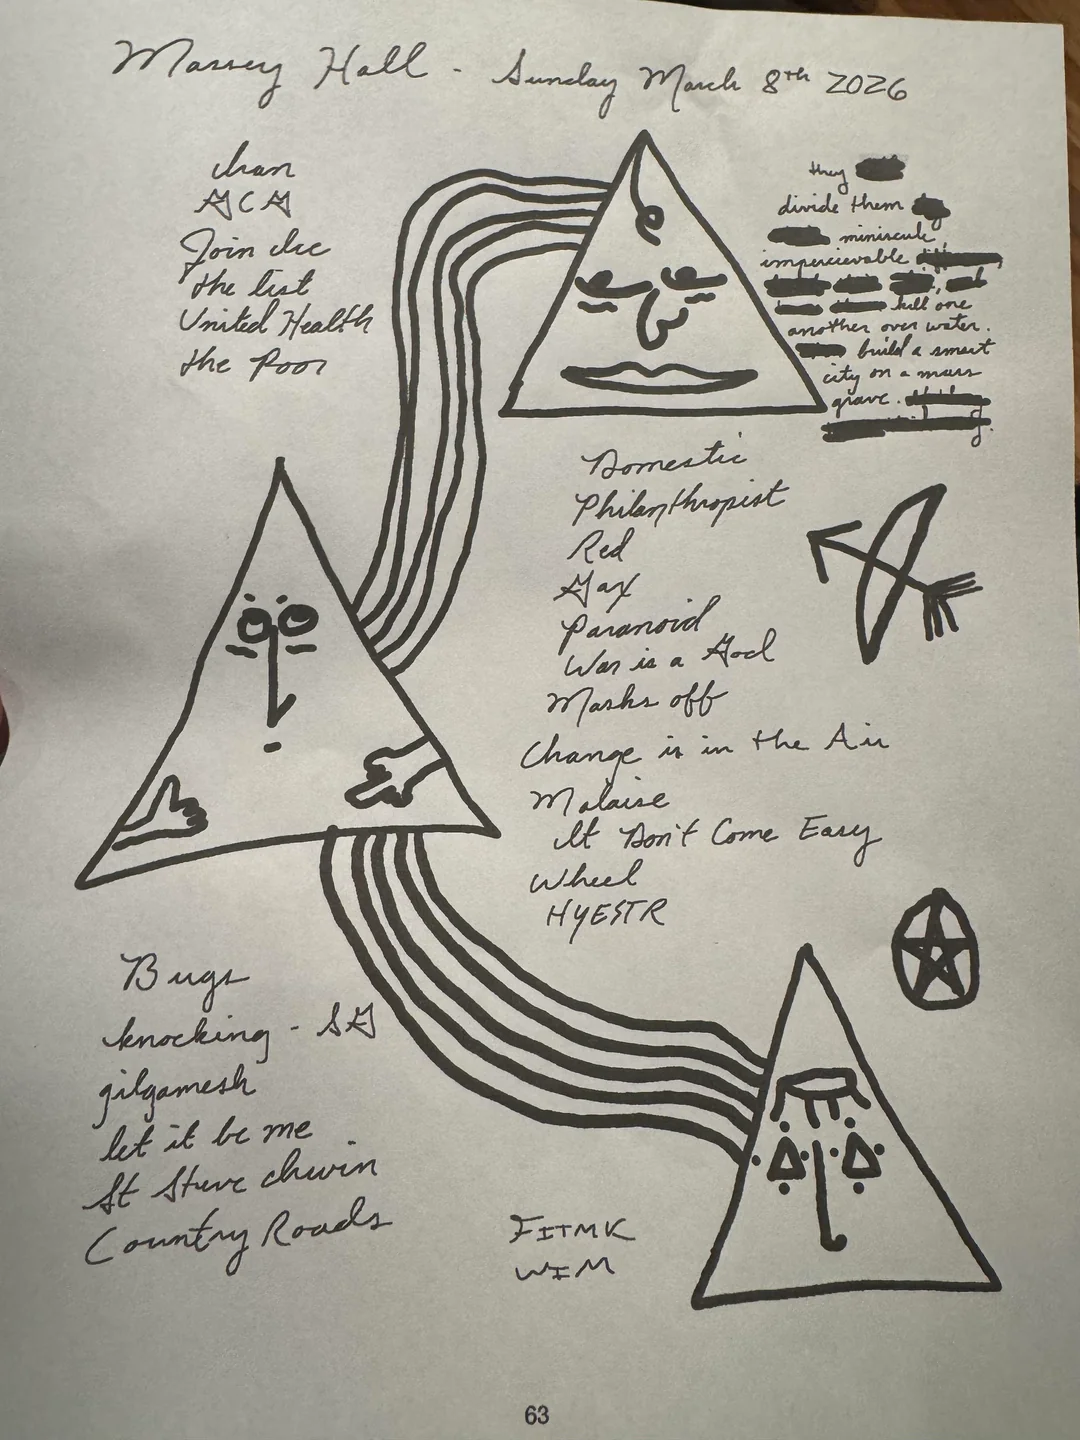 Massey Hall - Sunday March 8th 2026
GCG
Join Ice
the list
United Health
the Poor
they
divide them
miniscule
impercievable
kill one
another over water.
build a smart
city on a mass
grave.
Domestic
Philanthropist
Red
Gax
Paranoid
War is a God
Masks off
Change is in the Air
Malaise
It Don't Come Easy
Wheel
HYESTR
Bugs
knocking - SG
gilgamesh
let it be me
St Steve
Country Roads
FITMK
WIM
63